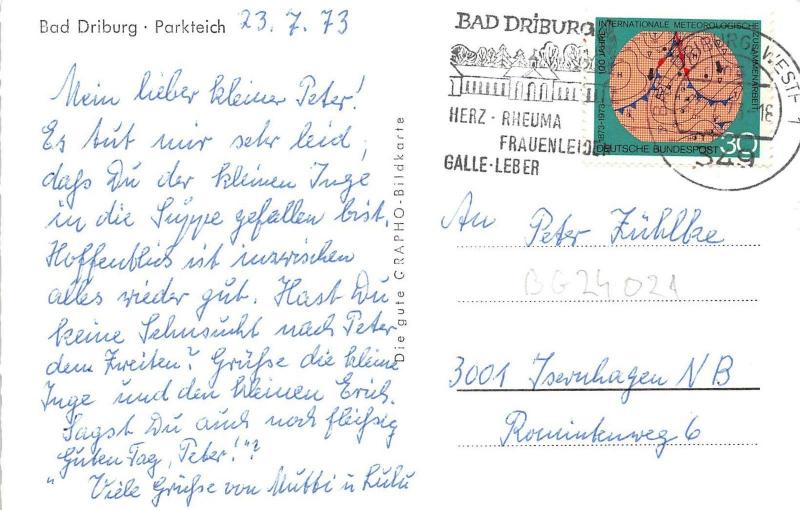 Bad Driburg · Parkteich
23.7.73
Mein lieber kleiner Peter!
Es tut mir sehr leid,
daß Du der kleinen Inge
in die Suppe gefallen bist.
Hoffentlich ist inzwischen
alles wieder gut. Hast Du
keine Sehnsucht nach Peter
dem Zweiten? Grüße die kleine
Inge und den kleinen Erich.
Sagst Du auch noch fleißig
"Guten Tag, Peter!"?
Viele Grüße von Mutti u. Lulu
Die gute GRAPHO-Bildkarte
BAD DRIBURG
HERZ · RHEUMA
FRAUENLEIDE
GALLE · LEBER
100 JAHRE INTERNATIONALE METEOROLOGISCHE ZUSAMMENARBEIT
1873-1973
DEUTSCHE BUNDESPOST 30
WESTF 1
18
349
An Peter Zühlke
BG24021
3001 Isernhagen NB
Romintenweg 6